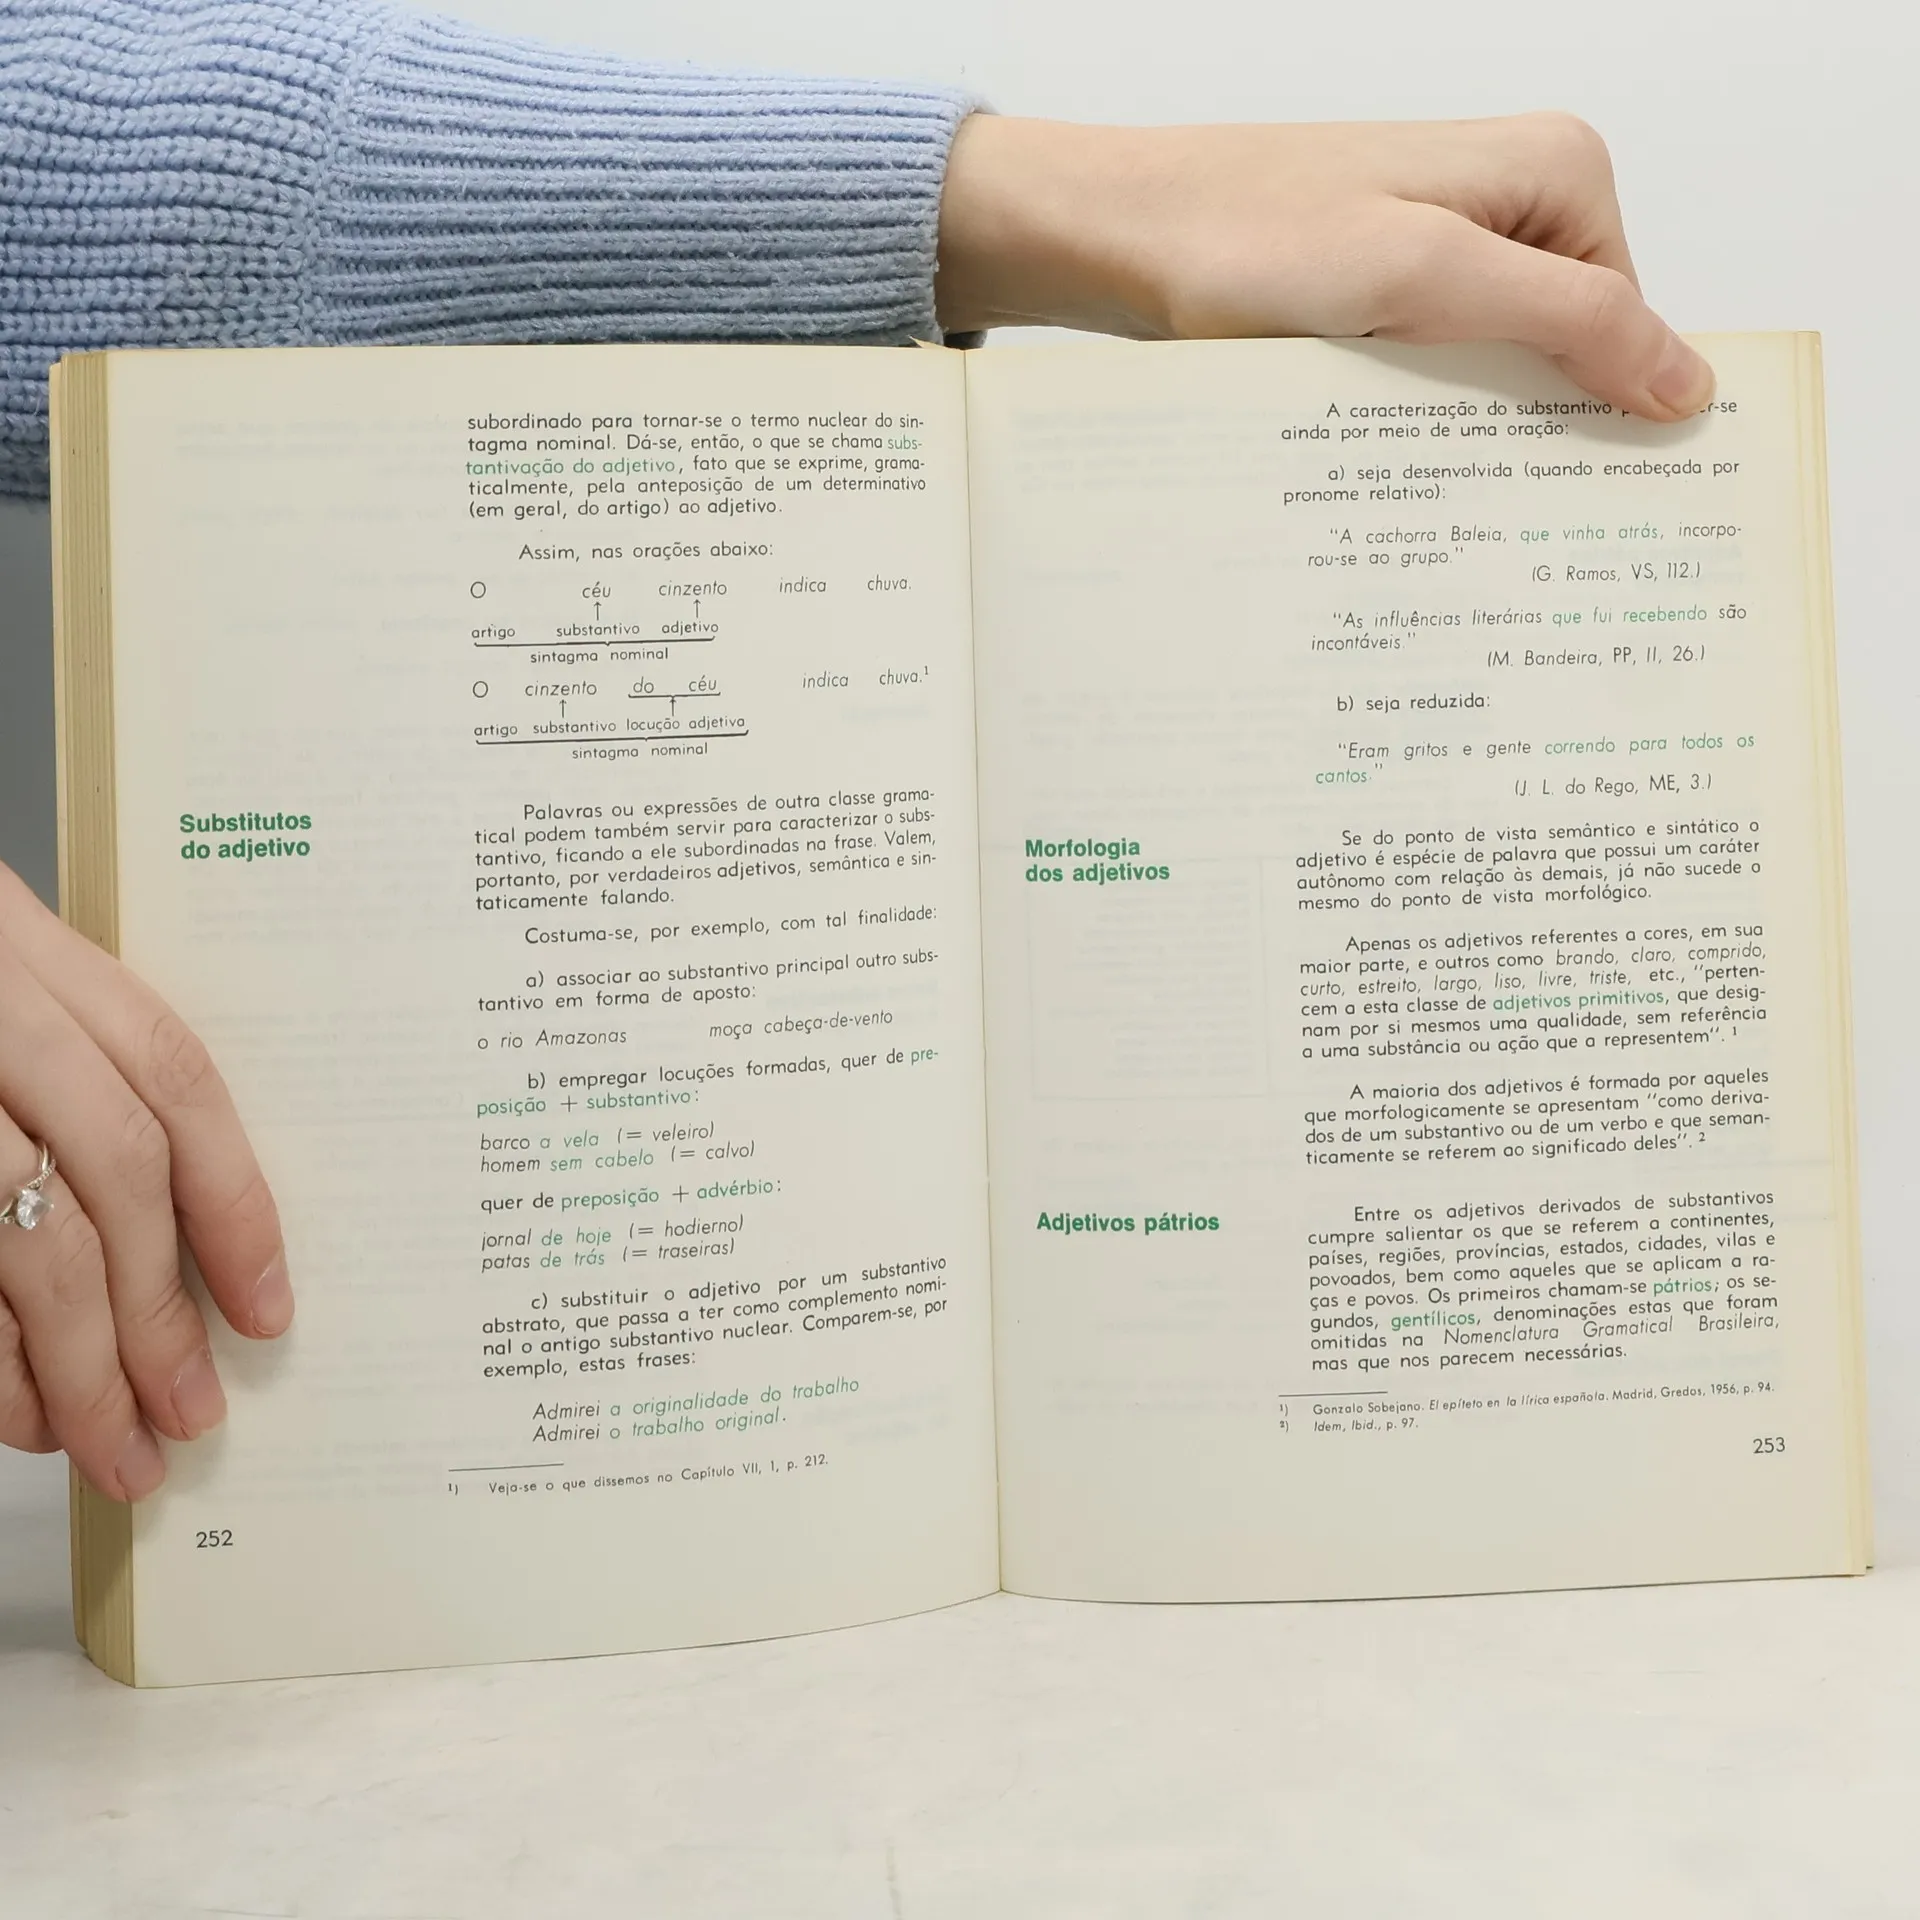 subordinado para tornar-se o termo nuclear do sin-
tagma nominal. Dá-se, então, o que se chama subs-
tantivação do adjetivo, fato que se exprime, grama-
ticalmente, pela anteposição de um determinativo
(em geral, do artigo) ao adjetivo.
Assim, nas orações abaixo:
O céu cinzento indica chuva.
↑ ↑
artigo substantivo adjetivo
sintagma nominal
O cinzento do céu indica chuva.¹
↑ ↑
artigo substantivo locução adjetiva
sintagma nominal
Substitutos
do adjetivo
Palavras ou expressões de outra classe grama-
tical podem também servir para caracterizar o subs-
tantivo, ficando a ele subordinadas na frase. Valem,
portanto, por verdadeiros adjetivos, semântica e sin-
taticamente falando.
Costuma-se, por exemplo, com tal finalidade:
a) associar ao substantivo principal outro subs-
tantivo em forma de aposto:
o rio Amazonas moça cabeça-de-vento
b) empregar locuções formadas, quer de pre-
posição + substantivo:
barco a vela (= veleiro)
homem sem cabelo (= calvo)
quer de preposição + advérbio:
jornal de hoje (= hodierno)
patas de trás (= traseiras)
c) substituir o adjetivo por um substantivo
abstrato, que passa a ter como complemento nomi-
nal o antigo substantivo nuclear. Comparem-se, por
exemplo, estas frases:
Admirei a originalidade do trabalho
Admirei o trabalho original.
¹) Veja-se o que dissemos no Capítulo VII, 1, p. 212.
252
A caracterização do substantivo r-se
ainda por meio de uma oração:
a) seja desenvolvida (quando encabeçada por
pronome relativo):
"A cachorra Baleia, que vinha atrás, incorpo-
rou-se ao grupo."
(G. Ramos, VS, 112.)
"As influências literárias que fui recebendo são
incontáveis."
(M. Bandeira, PP, II, 26.)
b) seja reduzida:
"Eram gritos e gente correndo para todos os
cantos."
(J. L. do Rego, ME, 3.)
Morfologia
dos adjetivos
Se do ponto de vista semântico e sintático o
adjetivo é espécie de palavra que possui um caráter
autônomo com relação às demais, já não sucede o
mesmo do ponto de vista morfológico.
Apenas os adjetivos referentes a cores, em sua
maior parte, e outros como brando, claro, comprido,
curto, estreito, largo, liso, livre, triste, etc., "perten-
cem a esta classe de adjetivos primitivos, que desig-
nam por si mesmos uma qualidade, sem referência
a uma substância ou ação que a representem". ¹
A maioria dos adjetivos é formada por aqueles
que morfologicamente se apresentam "como deriva-
dos de um substantivo ou de um verbo e que seman-
ticamente se referem ao significado deles". ²
Adjetivos pátrios
Entre os adjetivos derivados de substantivos
cumpre salientar os que se referem a continentes,
países, regiões, províncias, estados, cidades, vilas e
povoados, bem como aqueles que se aplicam a ra-
ças e povos. Os primeiros chamam-se pátrios; os se-
gundos, gentílicos, denominações estas que foram
omitidas na Nomenclatura Gramatical Brasileira,
mas que nos parecem necessárias.
¹) Gonzalo Sobejano. El epíteto en la lírica española. Madrid, Gredos, 1956, p. 94.
²) Idem, Ibid., p. 97.
253